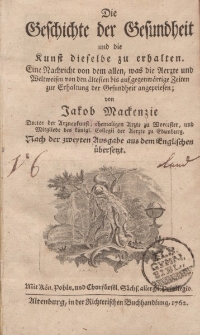 Die
Geschichte der Gesundheit
und die
Kunst dieselbe zu erhalten.
Eine Nachricht von dem allen, was die Aerzte und
Weltweisen von den ältesten bis auf gegenwärtige Zeiten
zur Erhaltung der Gesundheit angepriesen;
von
Jakob Mackenzie
Doctor der Arzneykunst, ehemaligen Arzte zu Worcester, und
Mitgliede des Königl. Collegii der Aerzte zu Edenburg.
Nach der zweyten Ausgabe aus dem Englischen
übersetzt.
Mit Kön. Pohln. und Churfürstl. Sächs. allergn. Privilegio.
Altenburg, in der Richterischen Buchhandlung, 1762.